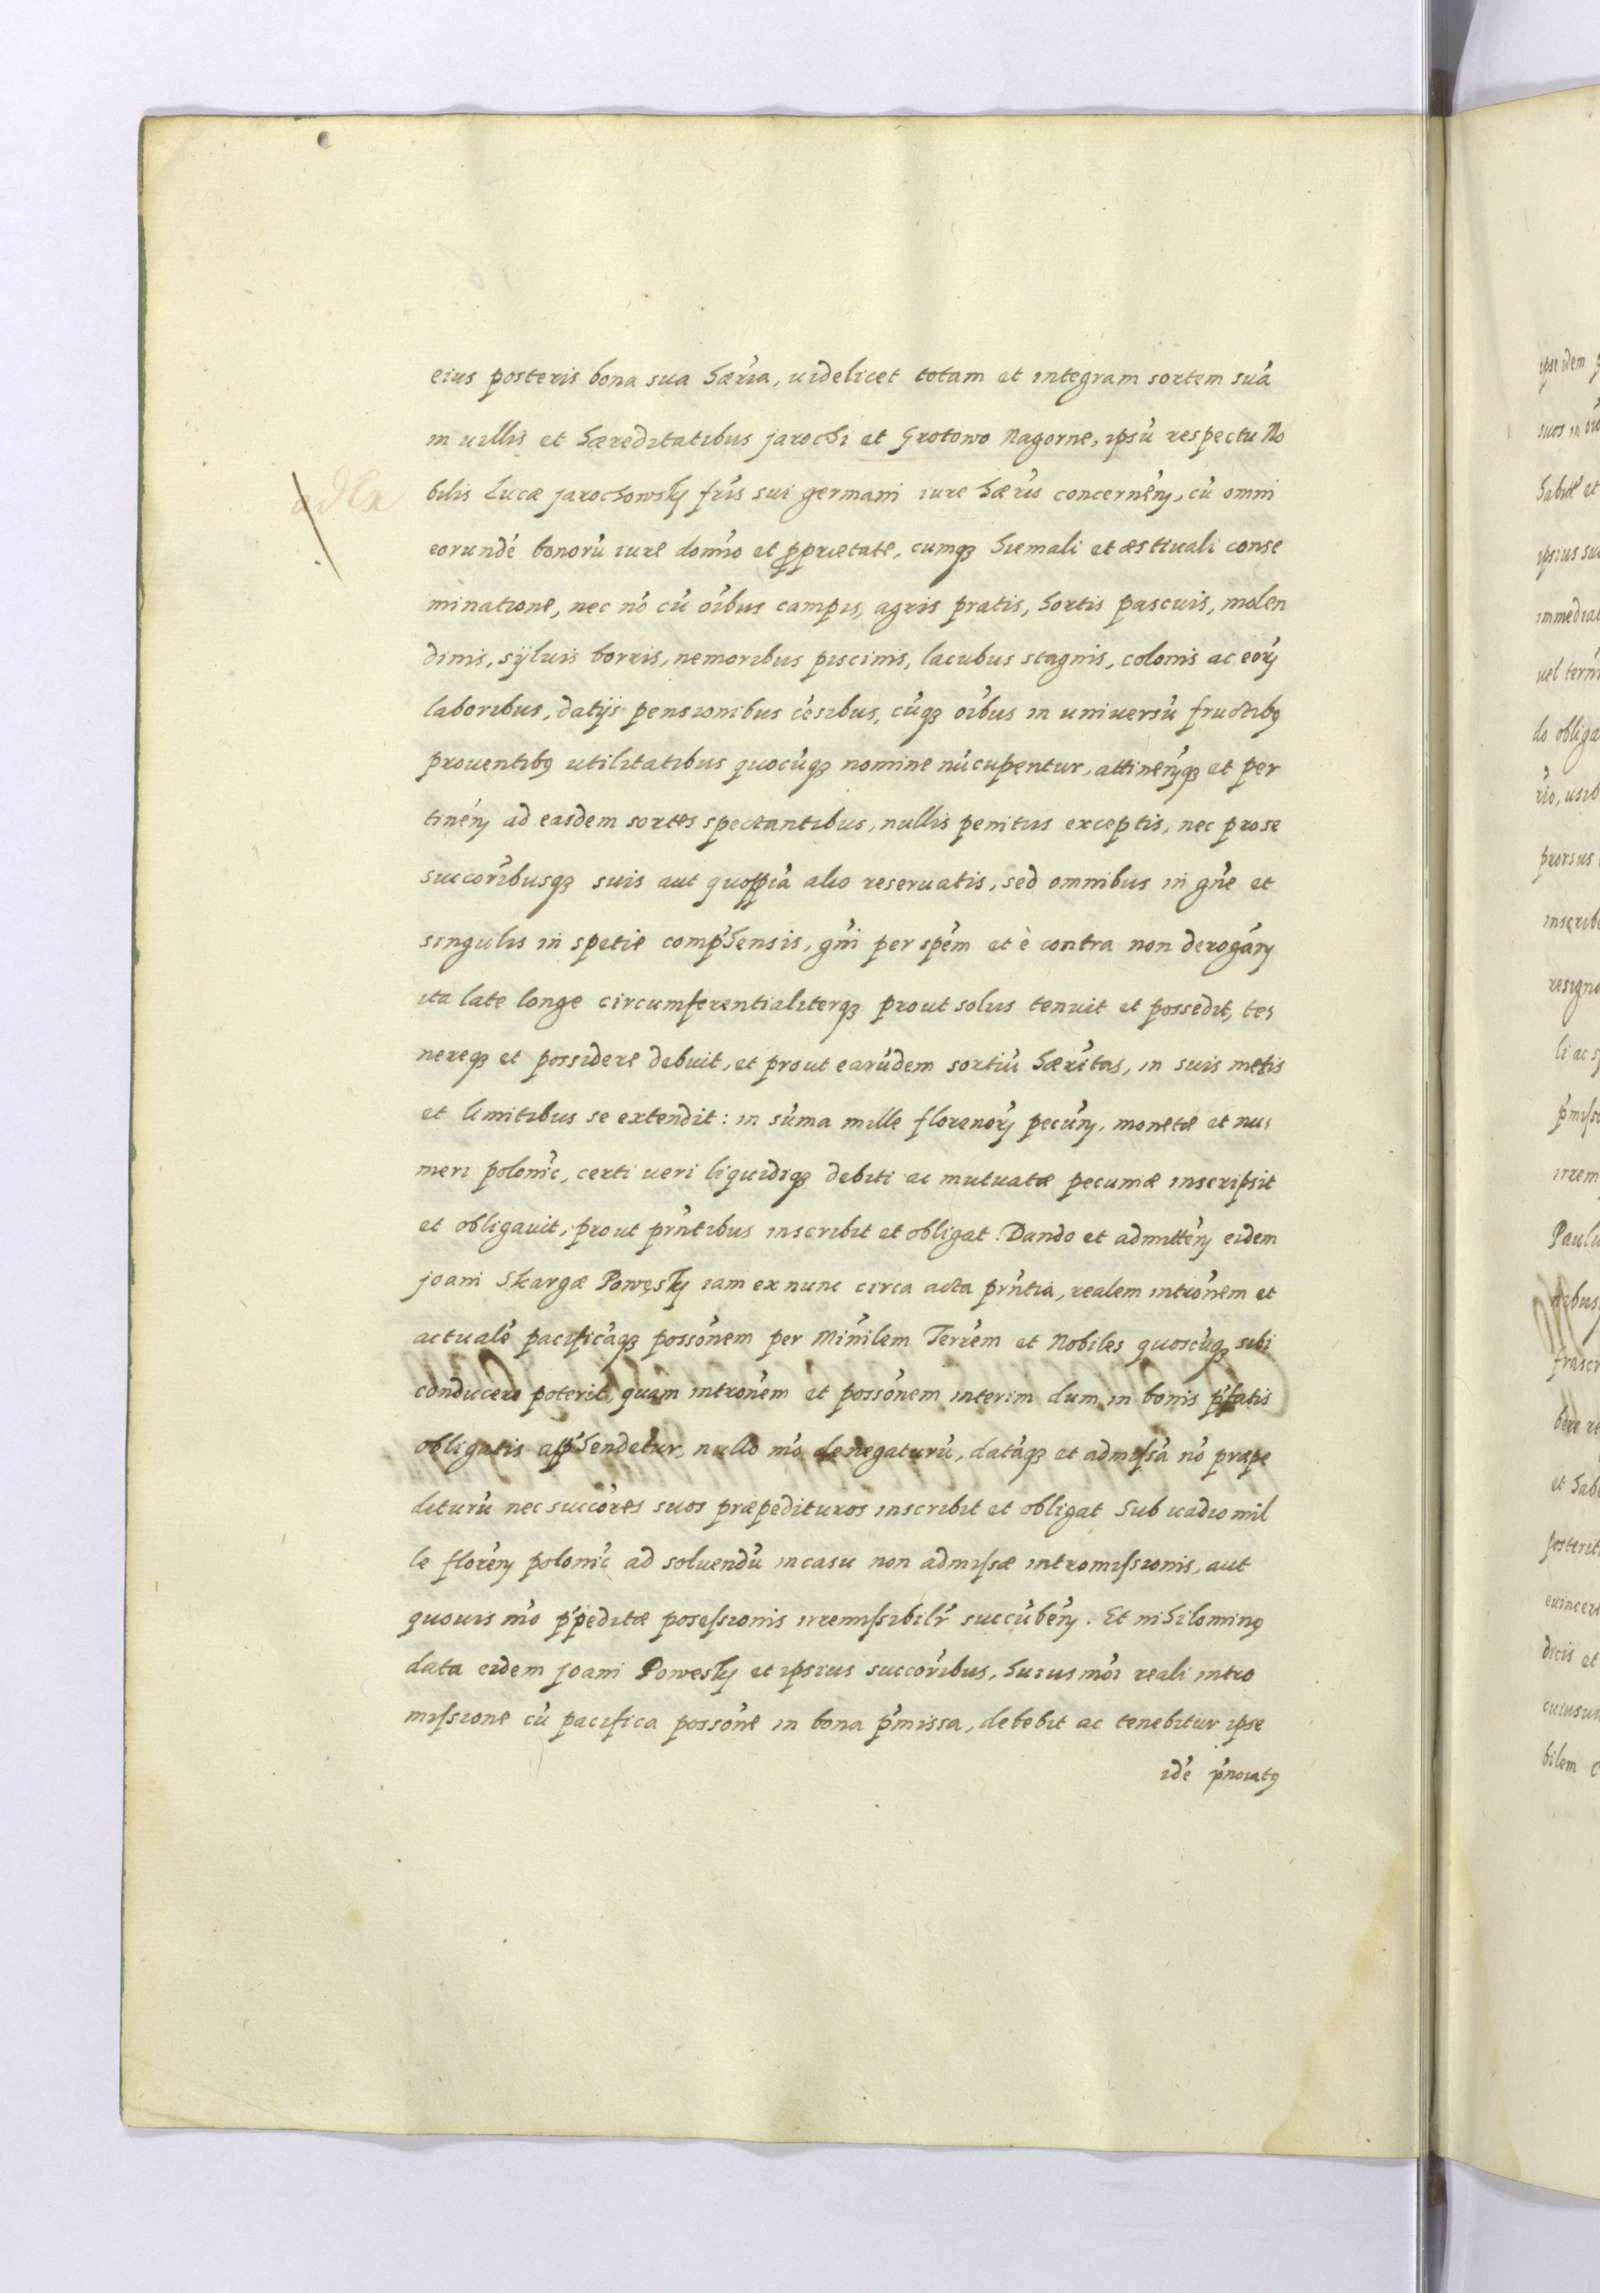 eius posteris bona sua hæria, uidelicet totam et integram sortem suā
in uillis et hæreditatibus jarochi et Grotowo Nagorne, ipsū respectu No
bilis Lucæ jarochowskӯ fr̃is sui germani iure hærio concernēn, cū omni
eorundē bonorū iure domĩo et ꝓprietate, cumqꝫ hiemali et æstiuali conse
minatione, nec nō cū oĩbus campis, agris pratis, hortis pascuis, molen
dinis, sÿluis borris, nemoribus piscinis, lacubus stagnis, colonis ac eorꝝ
laboribus, datijs pensionibus cēsibus, cūqꝫ oĩbus in uniuersū fructibꝰ
prouentibꝰ utilitatibus quocūqꝫ nomine nūcupentur, attinenꝭqꝫ et per
tinēn ad easdem sortes spectantibus, nullis penitus exceptis, nec pro se
succorĩbusqꝫ suis aut quoppiā alio reseruatis, sed omnibus in gñe et
singulis in spetie comp̃hensis, gñi per spēm et è contra non derogān
ita late longe circumferentialiterqꝫ prout solus tenuit et possedit, te
nereqꝫ et possidere debuit, et prout earūdem sortiū hærĩtas, in suis metis
et limitibus se extendit: in sūma mille florenorꝝ pecūn, monetæ et nu
meri polonic̃, certi ueri liquidiqꝫ debiti ac mutuatæ pecuniæ inscripsit
et obligauit, prout pr̃ntibus inscribit et obligat. Dando et admittēn eidem
joani Skargæ Powęskӯ iam ex nunc circa acta pr̃ntia, realem intronēm et
actualē pacificāqꝫ possonēm per Minĩlem Terrēm et Nobiles quoscūqꝫ sibi
conducere poterit, quam intronēm et possonēm interim dum in bonis p̃fatis
obligatis app̃hendetur, nullo mõ denegaturū, datāqꝫ et admissā nō præpe
diturū nec succores suos præpedituros inscribit et obligat Sub uadio mil
le florēn polonic̃ ad soluendū in casu non admissæ intromissionis, aut
quouis mõ p̃peditæ posessionis irremissibilr̃ succūbēn. Et nihilominꝰ
data eidem joani Powęskӯ et ipsius succorĩbus, huiusmõi reali intro
missione cū pacifica possone in bona p̃missa, debebit ac tenebitur ipse
idē p̃noiatꝰ